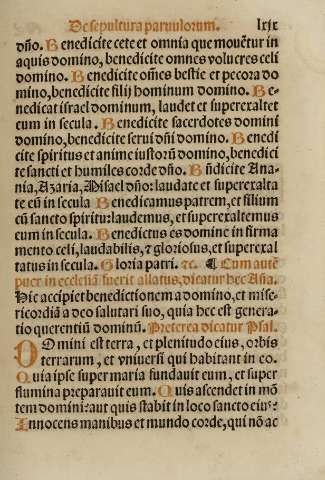 De sepultura paruulorum. lxix
dño. Benedicite cete et omnia que mouētur in
aquis domino, benedicite omnes volucres celi
domino. Benedicite oēs bestie et pecora do
mino, benedicite filij hominum domino. Be⸗
nedicat israel dominum, laudet et superexaltet
eum in secula. Benedicite sacerdotes domini
domino, benedicite serui dñi domino. Benedi
cite spiritus et anime iustorū domino, benedici
te sancti et humiles corde dño. Bñdicite Ana⸗
nia, Azaria, Misael dño: laudate et superexalta
te eū in secula Benedicamus patrem, et filium
cū sancto spiritu: laudemus, et superexaltemus
eum in secula. Benedictus es domine in firma
mento celi, laudabilis, ⁊ gloriosus, et superexal
tatus in secula. Gloria patri. ⁊c. ¶ Cum autē
puer in ecclesiā fuerit allatus, dicatur hec Aña.
Hic accipiet benedictionem a domino, et mise⸗
ricordiā a deo salutari suo, quia hec est genera⸗
tio querentiū dominū. Preterea dicatur Psal.
DOmini est terra, et plenitudo eius, orbis
terrarum, et vniuersi qui habitant in eo.
Quia ipse super maria fundauit eum, et super
flumina preparauit eum. Quis ascendet in mō
tem domini: aut quis stabit in loco sancto eius:
Innocens manibus et mundo corde, qui nō ac